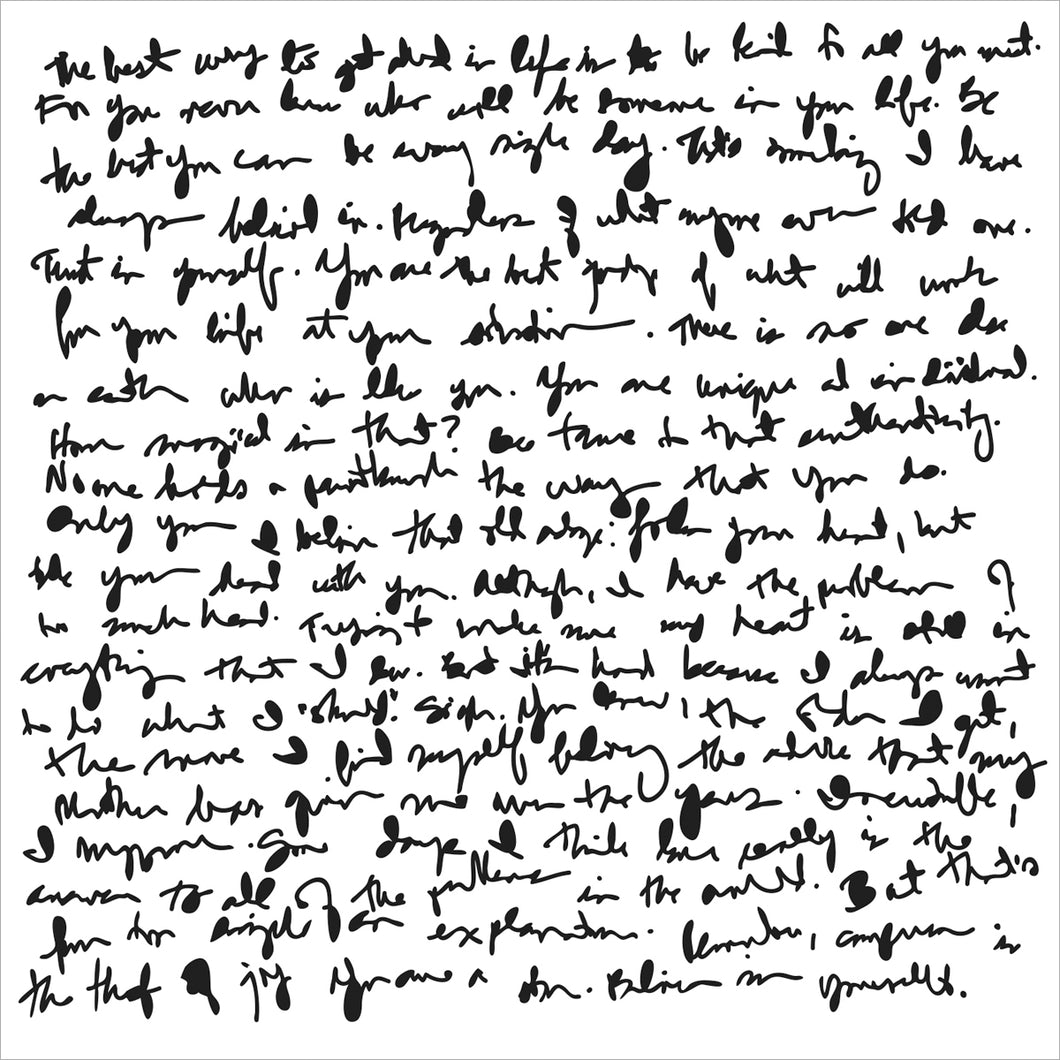 The best way to get ahead in life is to be kind to all you meet.
For you never know who will be someone in your life. Be
the best you can be every single day. That's something I have
always believed in. Regardless of what anyone ever told me.
Trust in yourself. You are the best judge of what will work
for your life at your . There is no one else
on earth who is like you. You are unique and individual.
How magical is that? Be true to that authenticity.
No one holds a paintbrush the way that you do.
Only you. I believe that old adage: follow your heart, but
take your head with you. Although, I have the problem of
too much head. Trying to make sure my heart is still in
everything that I do. But it's hard because I always want
to do what I "should". Sigh. You know, the older I get,
the more I find myself following the advice that my
Mother has given me over the years. Inevitable,
I suppose. Some days I think love really is the
answer to all of the problems in the world. But that's
far too simple an explanation. Remember, comparison is
the thief of joy. You are a star. Believe in yourself.